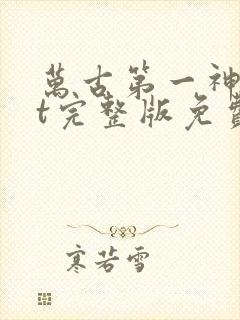 萬古第一神
t完整版免費
寒若雪